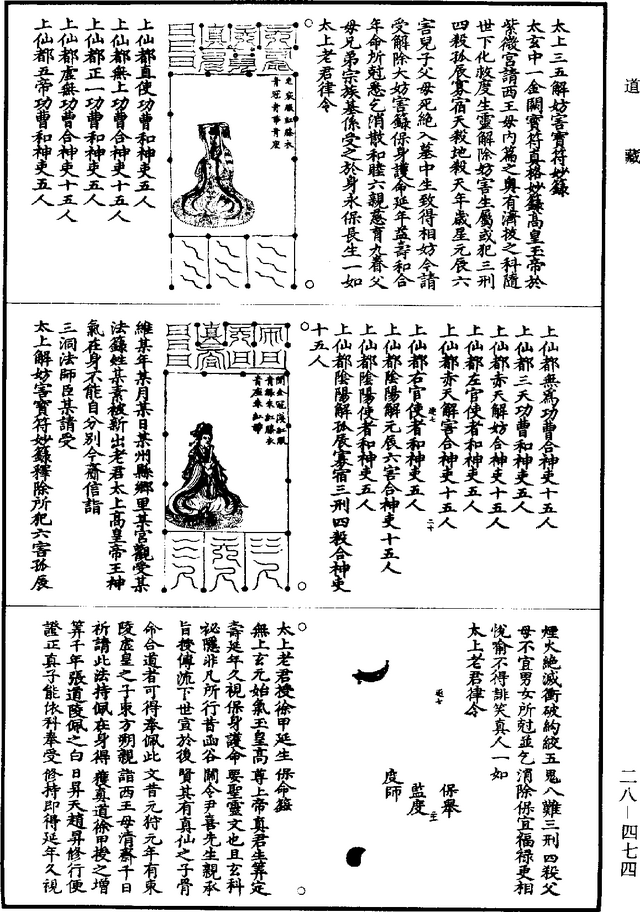 道藏
太上三五解妨害寶符妙籙
太玄中一金闕寶符真格妙籙高皇玉帝於
紫微宮請西王母內篇之奧有濟拔之科隨
世下化救度生靈解除妨害生屬或犯三刑
四殺孤辰寡宿天殺地殺天年歲星元辰六
害兒子父母死絕入墓中生致得相妨今請
受解除大妨害籙保身護命延年益壽和合
年命所尅悉乞消散和睦六親慈育九眷父
母兄弟宗族基係受之於身永保長生一如
太上老君律令
衣絳服紅滕衣
青冠青華青座
上仙都直使功曹和神吏五人
上仙都無上功曹合神吏十五人
上仙都正一功曹和神吏五人
上仙都虛無功曹合神吏十五人
上仙都五帝功曹和神吏五人
上仙都無為功曹合神吏十五人
上仙都三天功曹和神吏五人
上仙都赤天解妨合神吏十五人
上仙都左官使者和神吏五人
上仙都赤天解害合神吏十五人
上仙都右官使者和神吏五人
上仙都陰陽解元辰六害合神吏十五人
上仙都陰陽使者和神吏五人
上仙都陰陽解孤辰寡宿三刑四殺合神吏
十五人
維某年某月某日某州縣鄉里某宮觀受某
法籙姓某素被新出老君太上高皇帝王神
氣在身不能自分別今齋信詣
三洞法師臣某請受
太上解妨害寶符妙籙釋除所犯六害孤辰
煙火絕滅衝破約絞五鬼八難三刑四殺父
母不宜男女所尅並乞消除保宜福祿更相
悅愉不得誹笑真人一如
太上老君律令
保舉
監度
度師
太上老君授徐甲延生保命籙
無上玄元始氣王皇高尊上帝真君生筭定
壽延年久視保身護命要聖靈文也且玄科
祕隱非凡所行昔函谷關令尹喜先生親承
旨授傳流下世宣於後賢其有真仙之子骨
命合道者可得奉佩此文昔元狩元年有東
陵虛皇之子東方朔親詣西王母清齋千日
祈請此法持佩在身得獲真道徐甲授之增
筭千年張道陵佩之白日昇天趙昇修行便
證正真子能依科奉受修持即得延年久視
二八—四七四